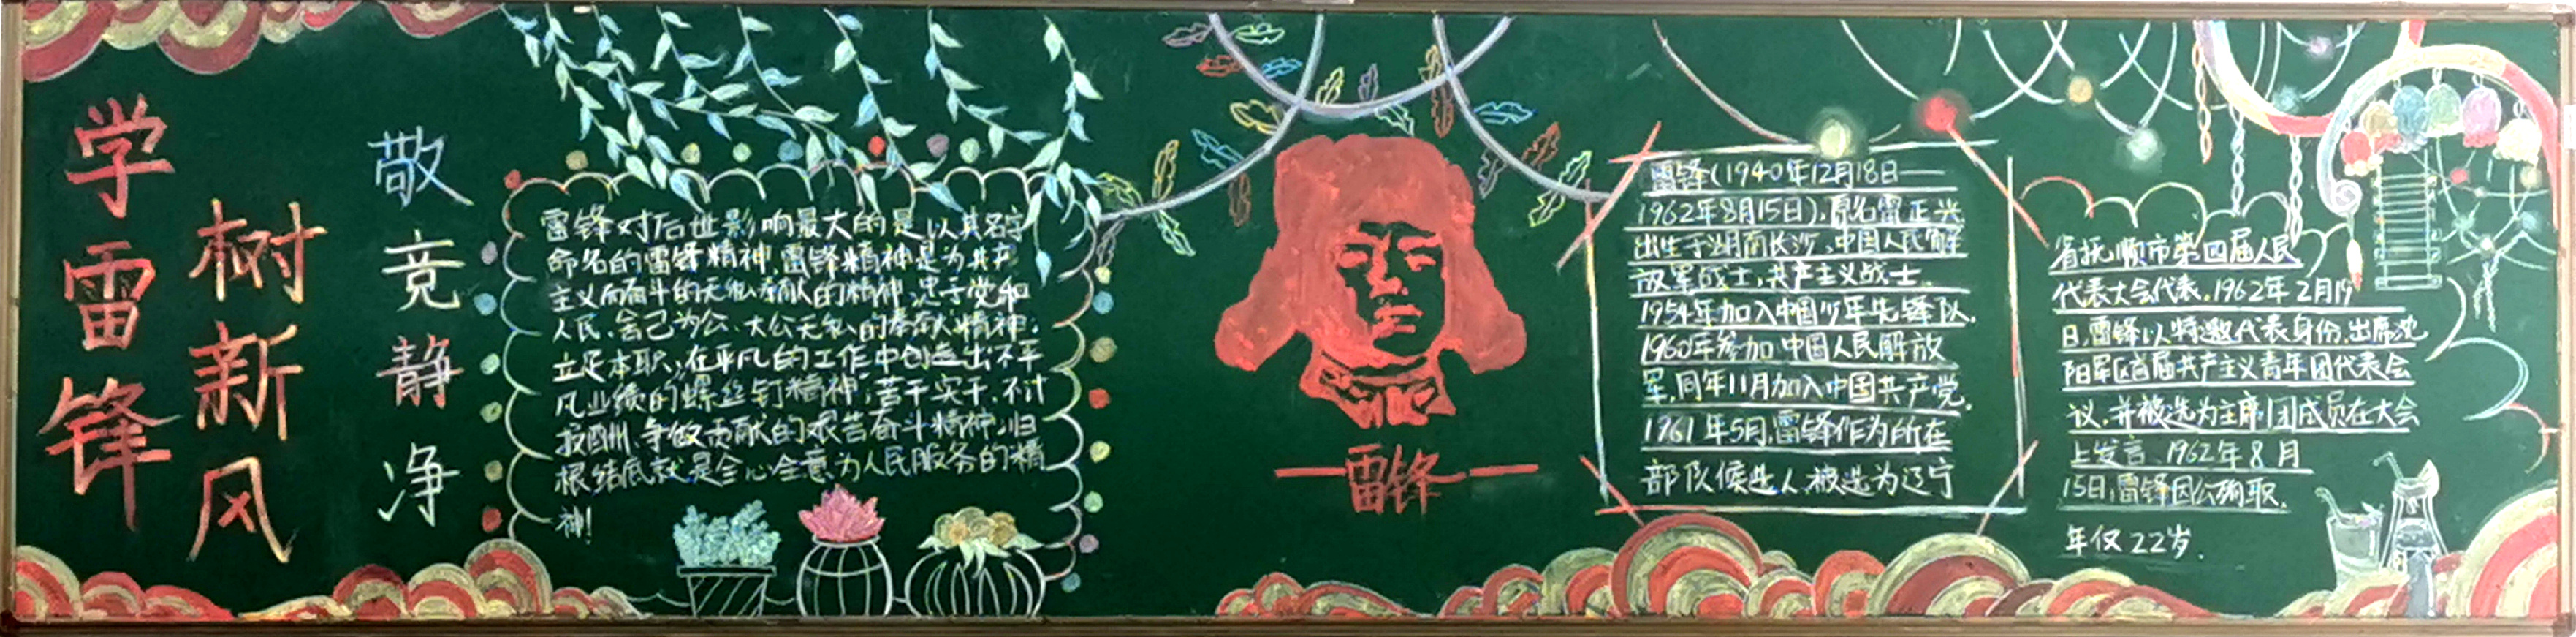 学雷锋
树新风
敬竞静净
雷锋对后世影响最大的是以其名字
命名的雷锋精神,雷锋精神是为共产
主义而奋斗的无私奉献的精神,忠于党和
人民、舍己为公、大公无私的奉献精神;
立足本职,在平凡的工作中创造出不平
凡业绩的螺丝钉精神;苦干实干、不计
报酬、争做贡献的艰苦奋斗精神,归
根结底就是全心全意为人民服务的精
神!
—雷锋—
雷锋(1940年12月18日—
1962年8月15日),原名雷正兴,
出生于湖南长沙,中国人民解
放军战士,共产主义战士.
1954年加入中国少年先锋队.
1960年参加中国人民解放
军,同年11月加入中国共产党.
1961年5月,雷锋作为所在
部队候选人,被选为辽宁
省抚顺市第四届人民
代表大会代表.1962年2月19
日,雷锋以特邀代表身份,出席沈
阳军区首届共产主义青年团代表会
议,并被选为主席团成员在大会
上发言.1962年8月
15日,雷锋因公殉职.
年仅22岁.